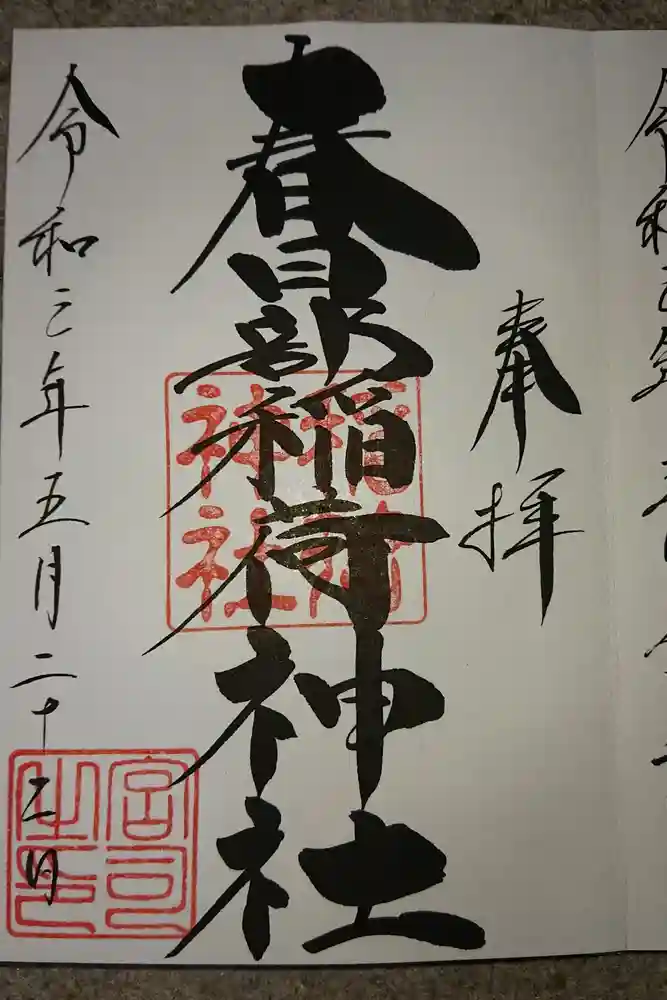 奉拝
春日部稲荷神社
稲荷神社
令和三年五月二十三日
宮司之印
令和三年